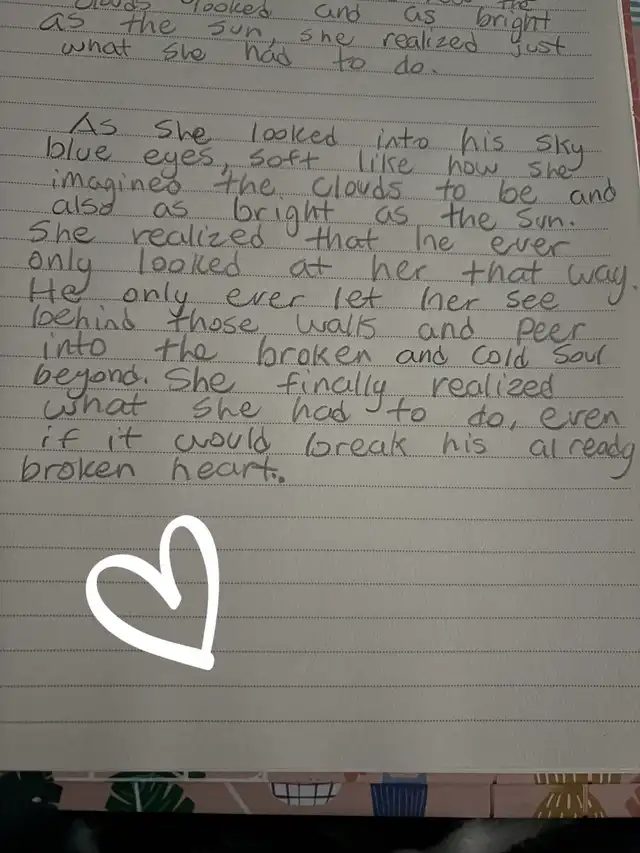 clouds looked and as bright
as the sun, she realized just
what she had to do.
As she looked into his sky
blue eyes, soft like how she
imagined the clouds to be and
also as bright as the sun.
She realized that he ever
only looked at her that way.
He only ever let her see
behind those walls and peer
into the broken and cold soul
beyond. She finally realized
what she had to do, even
if it would break his already
broken heart.